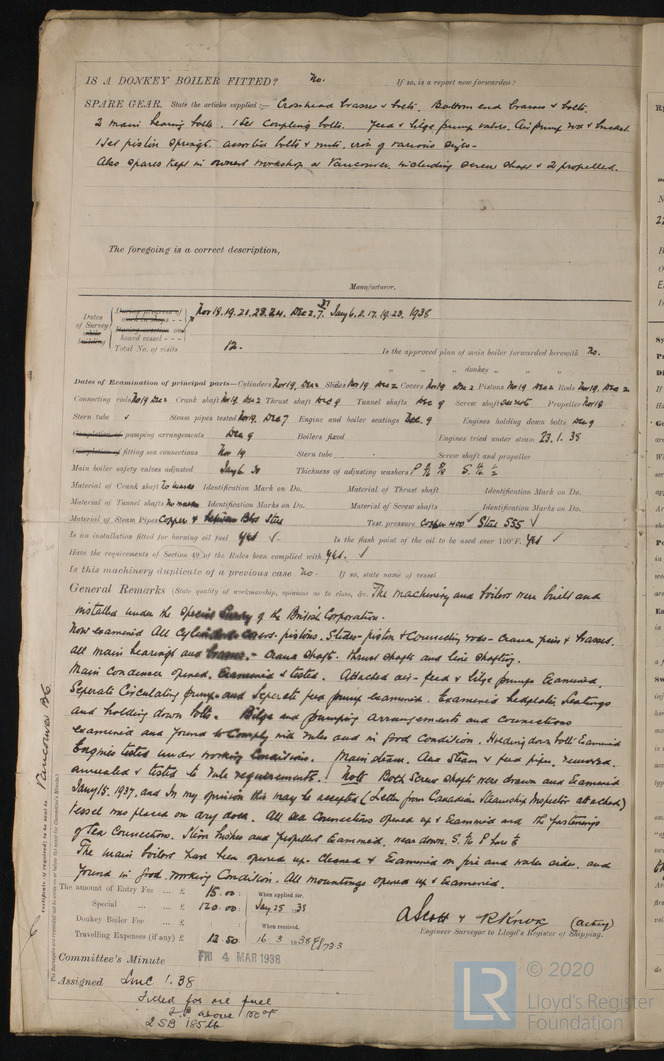 IS A DONKEY BOILER FITTED? No. If so, is a report now forwarded?
SPARE GEAR. State the articles supplied:— Crosshead brasses & bolts. Bottom end brasses & bolts.
2 main bearing bolts. 1 Set Coupling bolts. Feed & bilge pump valves. Air pump rod & bucket.
1 Set piston springs. assorted bolts & nuts. iron of various sizes-
Also spares kept in owners workshop at Vancouver including screw shaft & 2 propellers.
The foregoing is a correct description,
Manufacturer.
Dates of Survey while building
During progress of work in shops - -
During erection on board vessel - - -
Nov 18.19.21.23.24. Dec 2.7. Jany 6.8.17.19.23. 1938
Total No. of visits 12.
Is the approved plan of main boiler forwarded herewith No.
" " " donkey " " "
Dates of Examination of principal parts—Cylinders Nov 19, Dec 2 Slides Nov 19 Dec 2 Covers Nov 19 Dec 2 Pistons Nov 19 Dec 2 Rods Nov 19, Dec 2
Connecting rods Nov 19 Dec 2 Crank shaft Nov 19, Dec 2 Thrust shaft Dec 9 Tunnel shafts Dec 9 Screw shaft See note Propeller Nov 18
Stern tube Steam pipes tested Nov 19. Dec 7 Engine and boiler seatings Dec. 9 Engines holding down bolts Dec 9
Completion of pumping arrangements Dec 9 Boilers fixed Engines tried under steam 23.1.38
Completion of fitting sea connections Nov 19 Stern tube Screw shaft and propeller
Main boiler safety valves adjusted Jany 6. 38 Thickness of adjusting washers
Material of Crank shaft No marks Identification Mark on Do. Material of Thrust shaft Identification Mark on Do.
Material of Tunnel shafts No marks Identification Marks on Do. Material of Screw shafts Identification Marks on Do.
Material of Steam Pipes Copper & Steel Test pressure Copper 400 ✓ Steel 555 ✓
Is an installation fitted for burning oil fuel yes ✓ Is the flash point of the oil to be used over 150°F. yes ✓
Have the requirements of Section 49 of the Rules been complied with yes. ✓
Is this machinery duplicate of a previous case No. If so, state name of vessel
General Remarks (State quality of workmanship, opinions as to class, &c. The machinery and boilers were built and
installed under the Special Survey of the British Corporation.
Now examined All Cylinders covers. pistons. Slides-piston & Connecting rods- Crank pins & brasses.
all main bearings and brasses.- Crank shaft. thrust shafts and line shafting.
Main Condenser opened, Examined & tested. Attached air- feed & bilge pumps Examined
Seperate Circulating pump and Seperate feed pump examined. Examined bedplate, Seatings
and holding down bolts. Bilge and pumping arrangements and connections
examined and found to Comply with rules and in good Condition. Holding down bolts Examined
Engines tested under working Conditions. Main steam. Aux Steam & feed pipes. removed.
annealed & tested to rule requirements. Note Both Screw shafts were drawn and Examined
Jany 15. 1937. and In my opinion this may be accepted (Letter from Canadian Steamship Inspector attached)
Vessel was placed on dry dock. All sea Connections opened up & Examined and the fastenings
of Sea Connections. Stern bushes and propellers Examined, wear down.
The main boilers have been opened up. Cleaned & Examined on fire and water sides. and
found in good. working Condition. All mountings opened up & Examined.
The amount of Entry Fee ... £ 15.00 : When applied for,
Special ... £ 120.00 : Jany. 25 1938
Donkey Boiler Fee ... £ : : When received,
Travelling Expenses (if any) £ 12.50 16.3 1938
A Scott & R Knox (acting)
Engineer Surveyor to Lloyd's Register of Shipping.
Committee's Minute FRI 4 MAR 1938
Assigned LMC 1.38
Fitted for oil fuel
F.P. above 150°F
2 SB 185 lb
Certificate (if required) to be sent to Vancouver BC
© 2020
LR
Lloyd's Register
Foundation